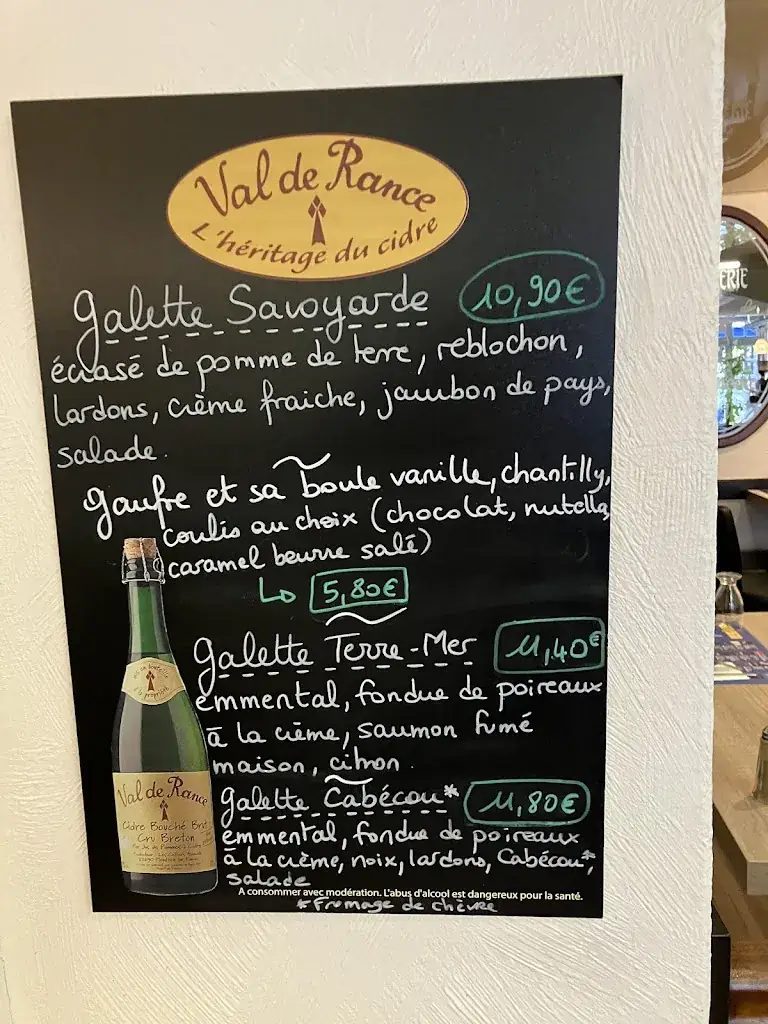 Val de Rance
L'héritage du cidre
Galette Savoyarde 10,90€
écrasé de pomme de terre, reblochon,
lardons, crème fraiche, jambon de pays,
salade.
Gaufre et sa boule vanille, chantilly,
coulis au choix (chocolat, nutella,
caramel beurre salé)
5,80€
Galette Terre-Mer 11,40€
emmental, fondue de poireaux
à la crème, saumon fumé
maison, citron.
Galette Cabécou* 11,80€
emmental, fondue de poireaux
à la crème, noix, lardons, Cabécou*,
salade
A consommer avec modération. L'abus d'alcool est dangereux pour la santé.
*fromage de chèvre
Val de Rance
Cidre Bouché Brut
Cru Breton
ERIE